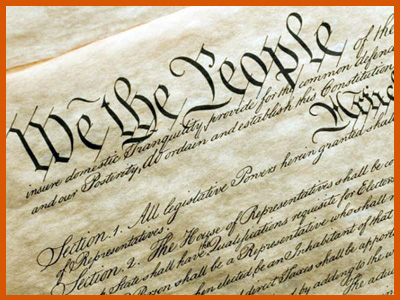 We the People of the
insure domestic Tranquility, provide for the common defence
and our Posterity, do ordain and establish this Constitution
Section. 1. All legislative Powers herein granted shall
of Representatives.
Section. 2. The House of Representatives shall be c
State shall have Qualifications requisite for Elector
Person shall be a Representative who shall
when elected, be an Inhabitant of that
direct Taxes shall be appor
by adding to the